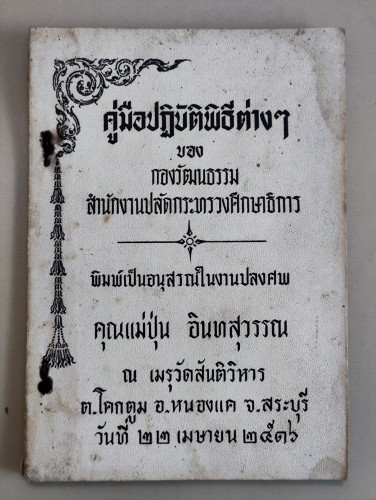 คู่มือปฏิบัติพิธีต่างๆ
ของ
กองวัฒนธรรม
สำนักงานปลัดกระทรวงศึกษาธิการ
พิมพ์เป็นอนุสรณ์ในงานปลงศพ
คุณแม่ปุ่น อินทสุวรรณ
ณ เมรุวัดสันติวิหาร
ต.โคกตูม อ.หนองแค จ.สระบุรี
วันที่ ๒๒ เมษายน ๒๕๓๖